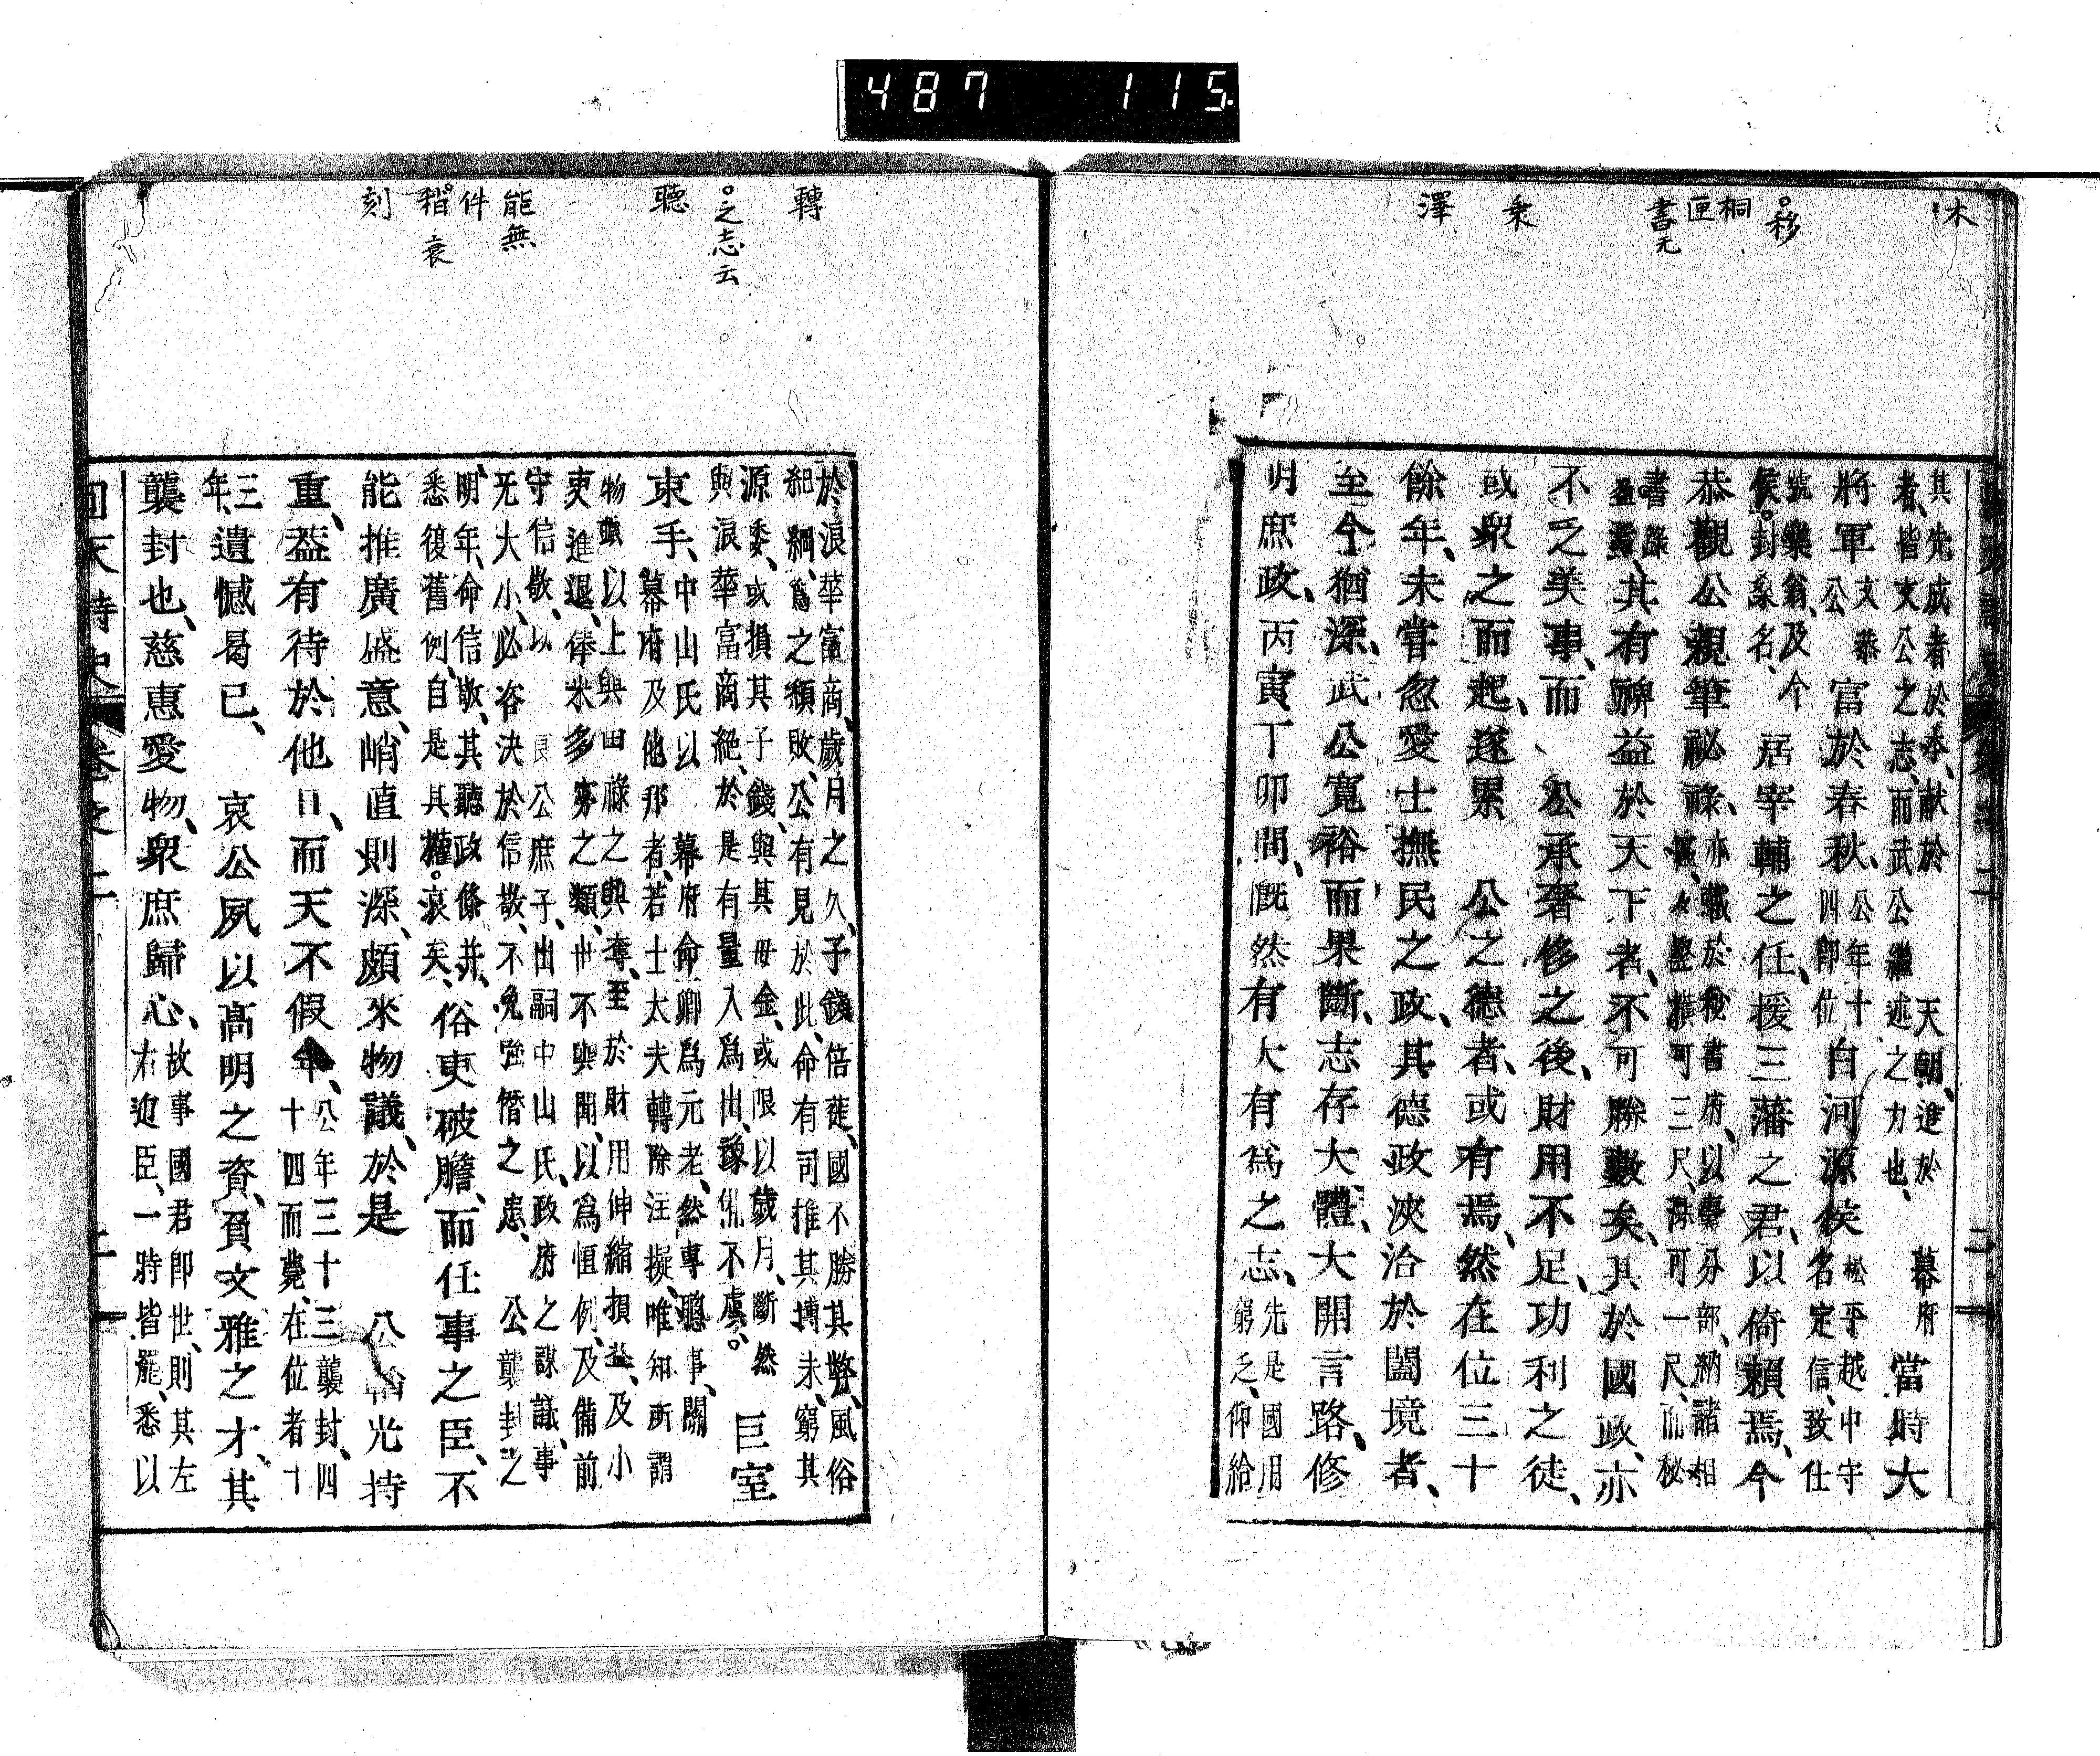 487 115.
木
移
桐
匣
書
尤
秉
澤
其先成者於本、献於 天朝、進於 幕府
者、皆文公之志、而武公繼述之力也、
當時大
將軍
文恭
公
富於春秋、
公年十
四即位
白河源侯
松平越中守
名定信、致仕
號樂翁、及今
侯。封桑名、
居宰輔之任、援三藩之君、以倚賴焉、今
恭觀公親筆祕祿、
亦載於秘書府、以事分部、納諸相
匱、々竪横可三尺、深可一尺、而秘
書錄
盈匱、
其有裨益於天下者、不可勝數矣、其於國政、亦
不乏美事、而 公承奢侈之後、財用不足、功利之徒、
或衆之而起、遂累 公之德者、或有焉、然在位三十
餘年、未嘗忽愛士撫民之政、其德政浹洽於闔境者、
至今猶深、武公寬裕而果斷、志存大體、大開言路、修
明庶政、丙寅丁卯間、慨然有大有爲之志、
先是國用
窮乏、仰給
轉
之志云
聽
能無
件
稽
衰
刻
於浪華富商、歲月之久、子錢倍蓰、國不勝其弊、風俗
紀綱、爲之頽敗、公有見於此、命有司推其摶未、窮其
源委、或損其子錢、與其毋金、或限以歲月、斷然
與浪華富商絕、於是有量入爲出、豫備不虞。
巨室
束手、
中山氏以 幕府命卿爲元老、然專聽事、關
幕府及他邦者、若士太夫轉除注擬、唯知所謂
物頭以上與田祿之與奪、至於財用伸縮損益、及小
吏進退、俸米多寡之類、世不與聞、以爲恒例、及備前
守信敬、以 良公庶子、出嗣中山氏、政府之謀議、事
无大小、必咨決於信敬、不免強僭之患、 公襲封之
明年、命信敬、其聽政條并、
悉復舊例、自是其權。衰矣、
俗吏破膽、而任事之臣、不
能推廣盛意、峭直則深、頗來物議、於是 公韜光持
重、蓋有待於他日、而天不假年、
公年三十三襲封、四
十四而薨、在位者十
三
年、
遺憾曷已、 哀公夙以高明之資、負文雅之才、其
襲封也、慈惠愛物、衆庶歸心、
故事國君卽世、則其左
右迎臣、一時皆罷、悉以